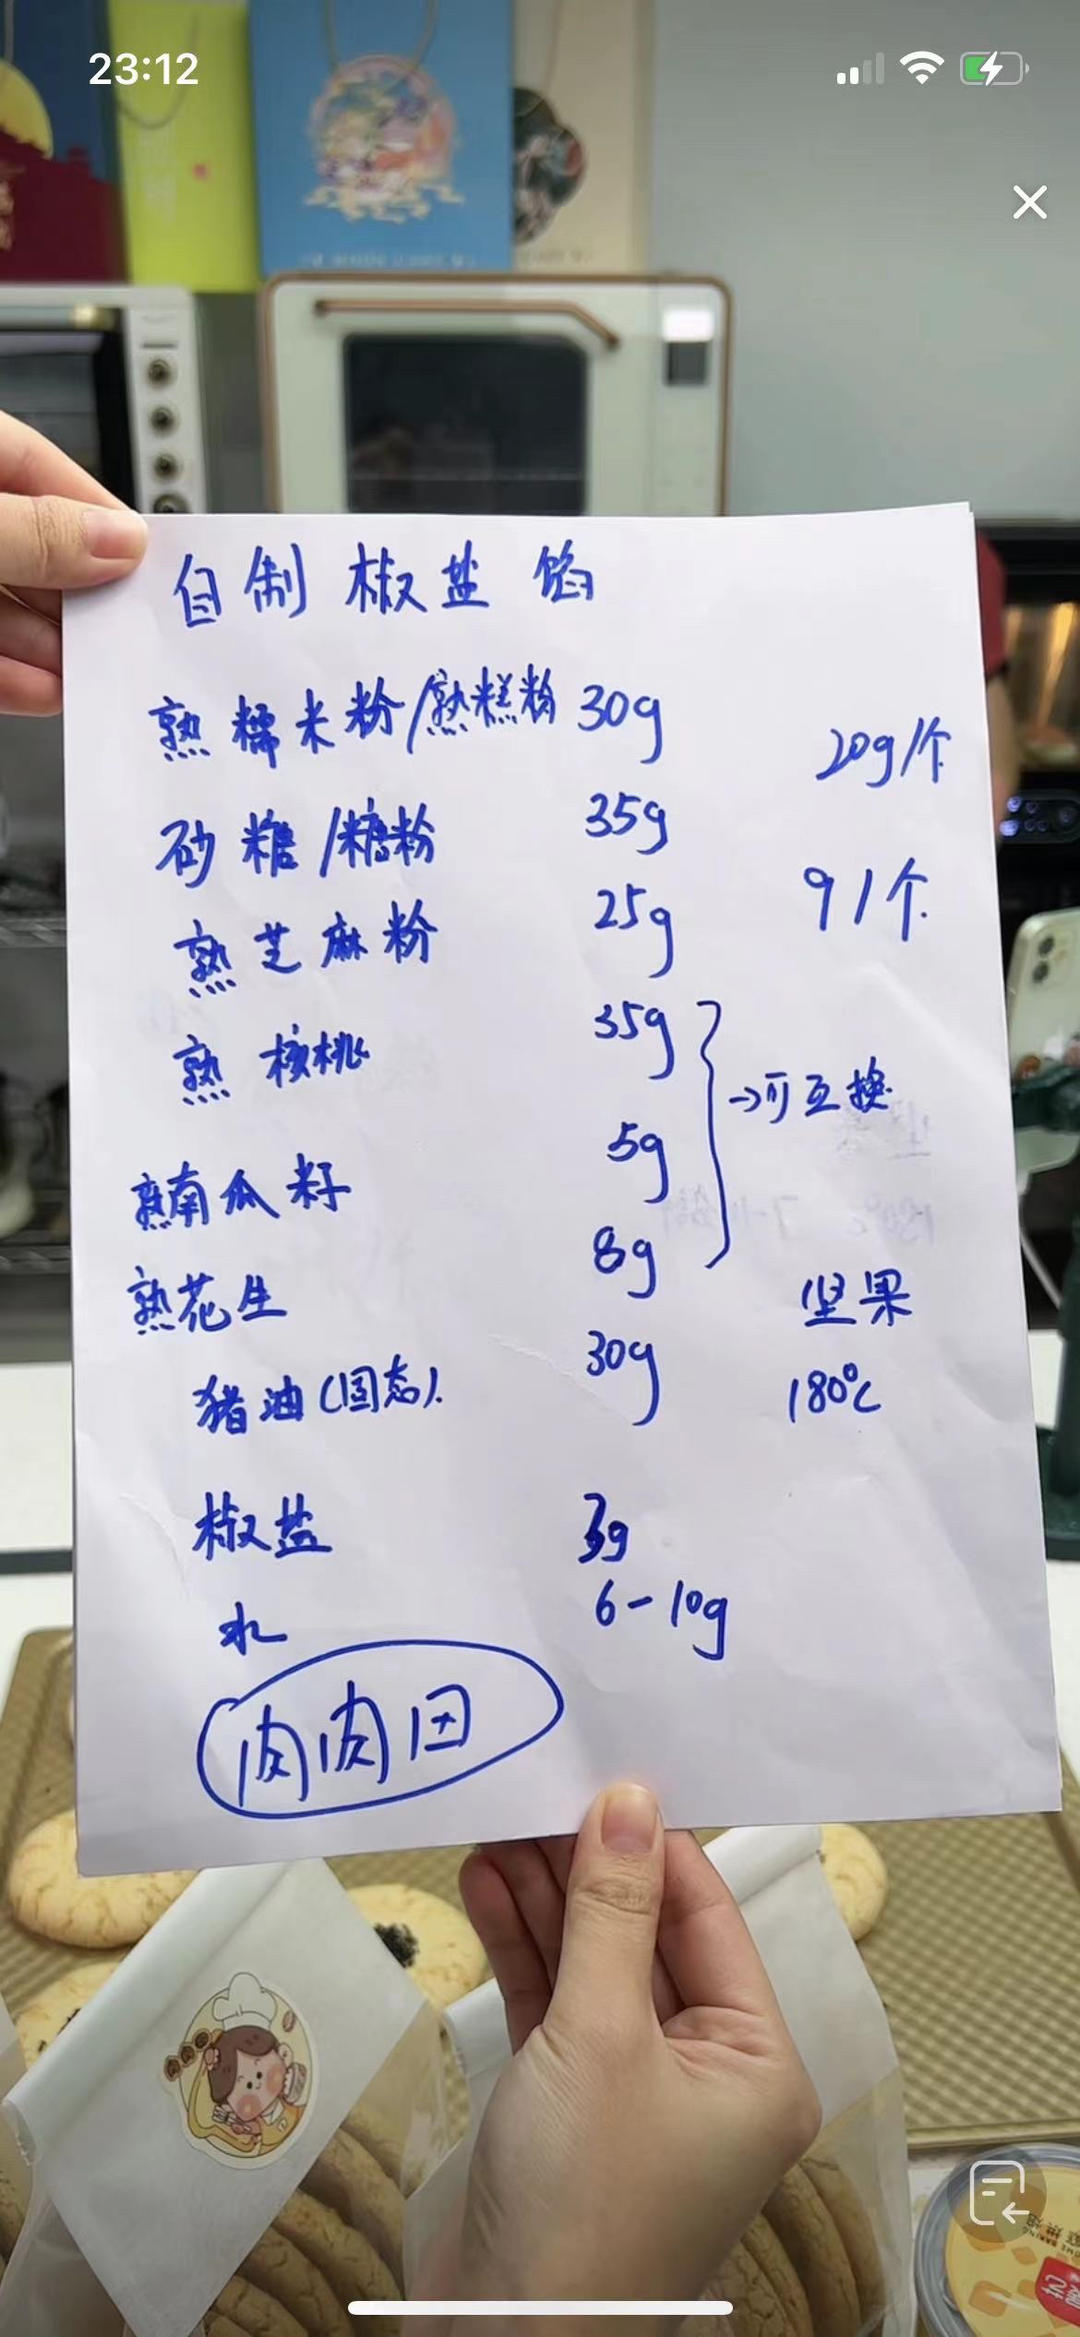 23:12
自制椒盐馅
熟糯米粉/熟糕粉 30g
20g/个
砂糖/糖粉 35g
熟芝麻粉 25g
9个
熟核桃 35g
→可互换
熟南瓜籽 5g
熟花生 8g
坚果
猪油(固态). 30g
180℃
椒盐 3g
水 6-10g
肉肉田